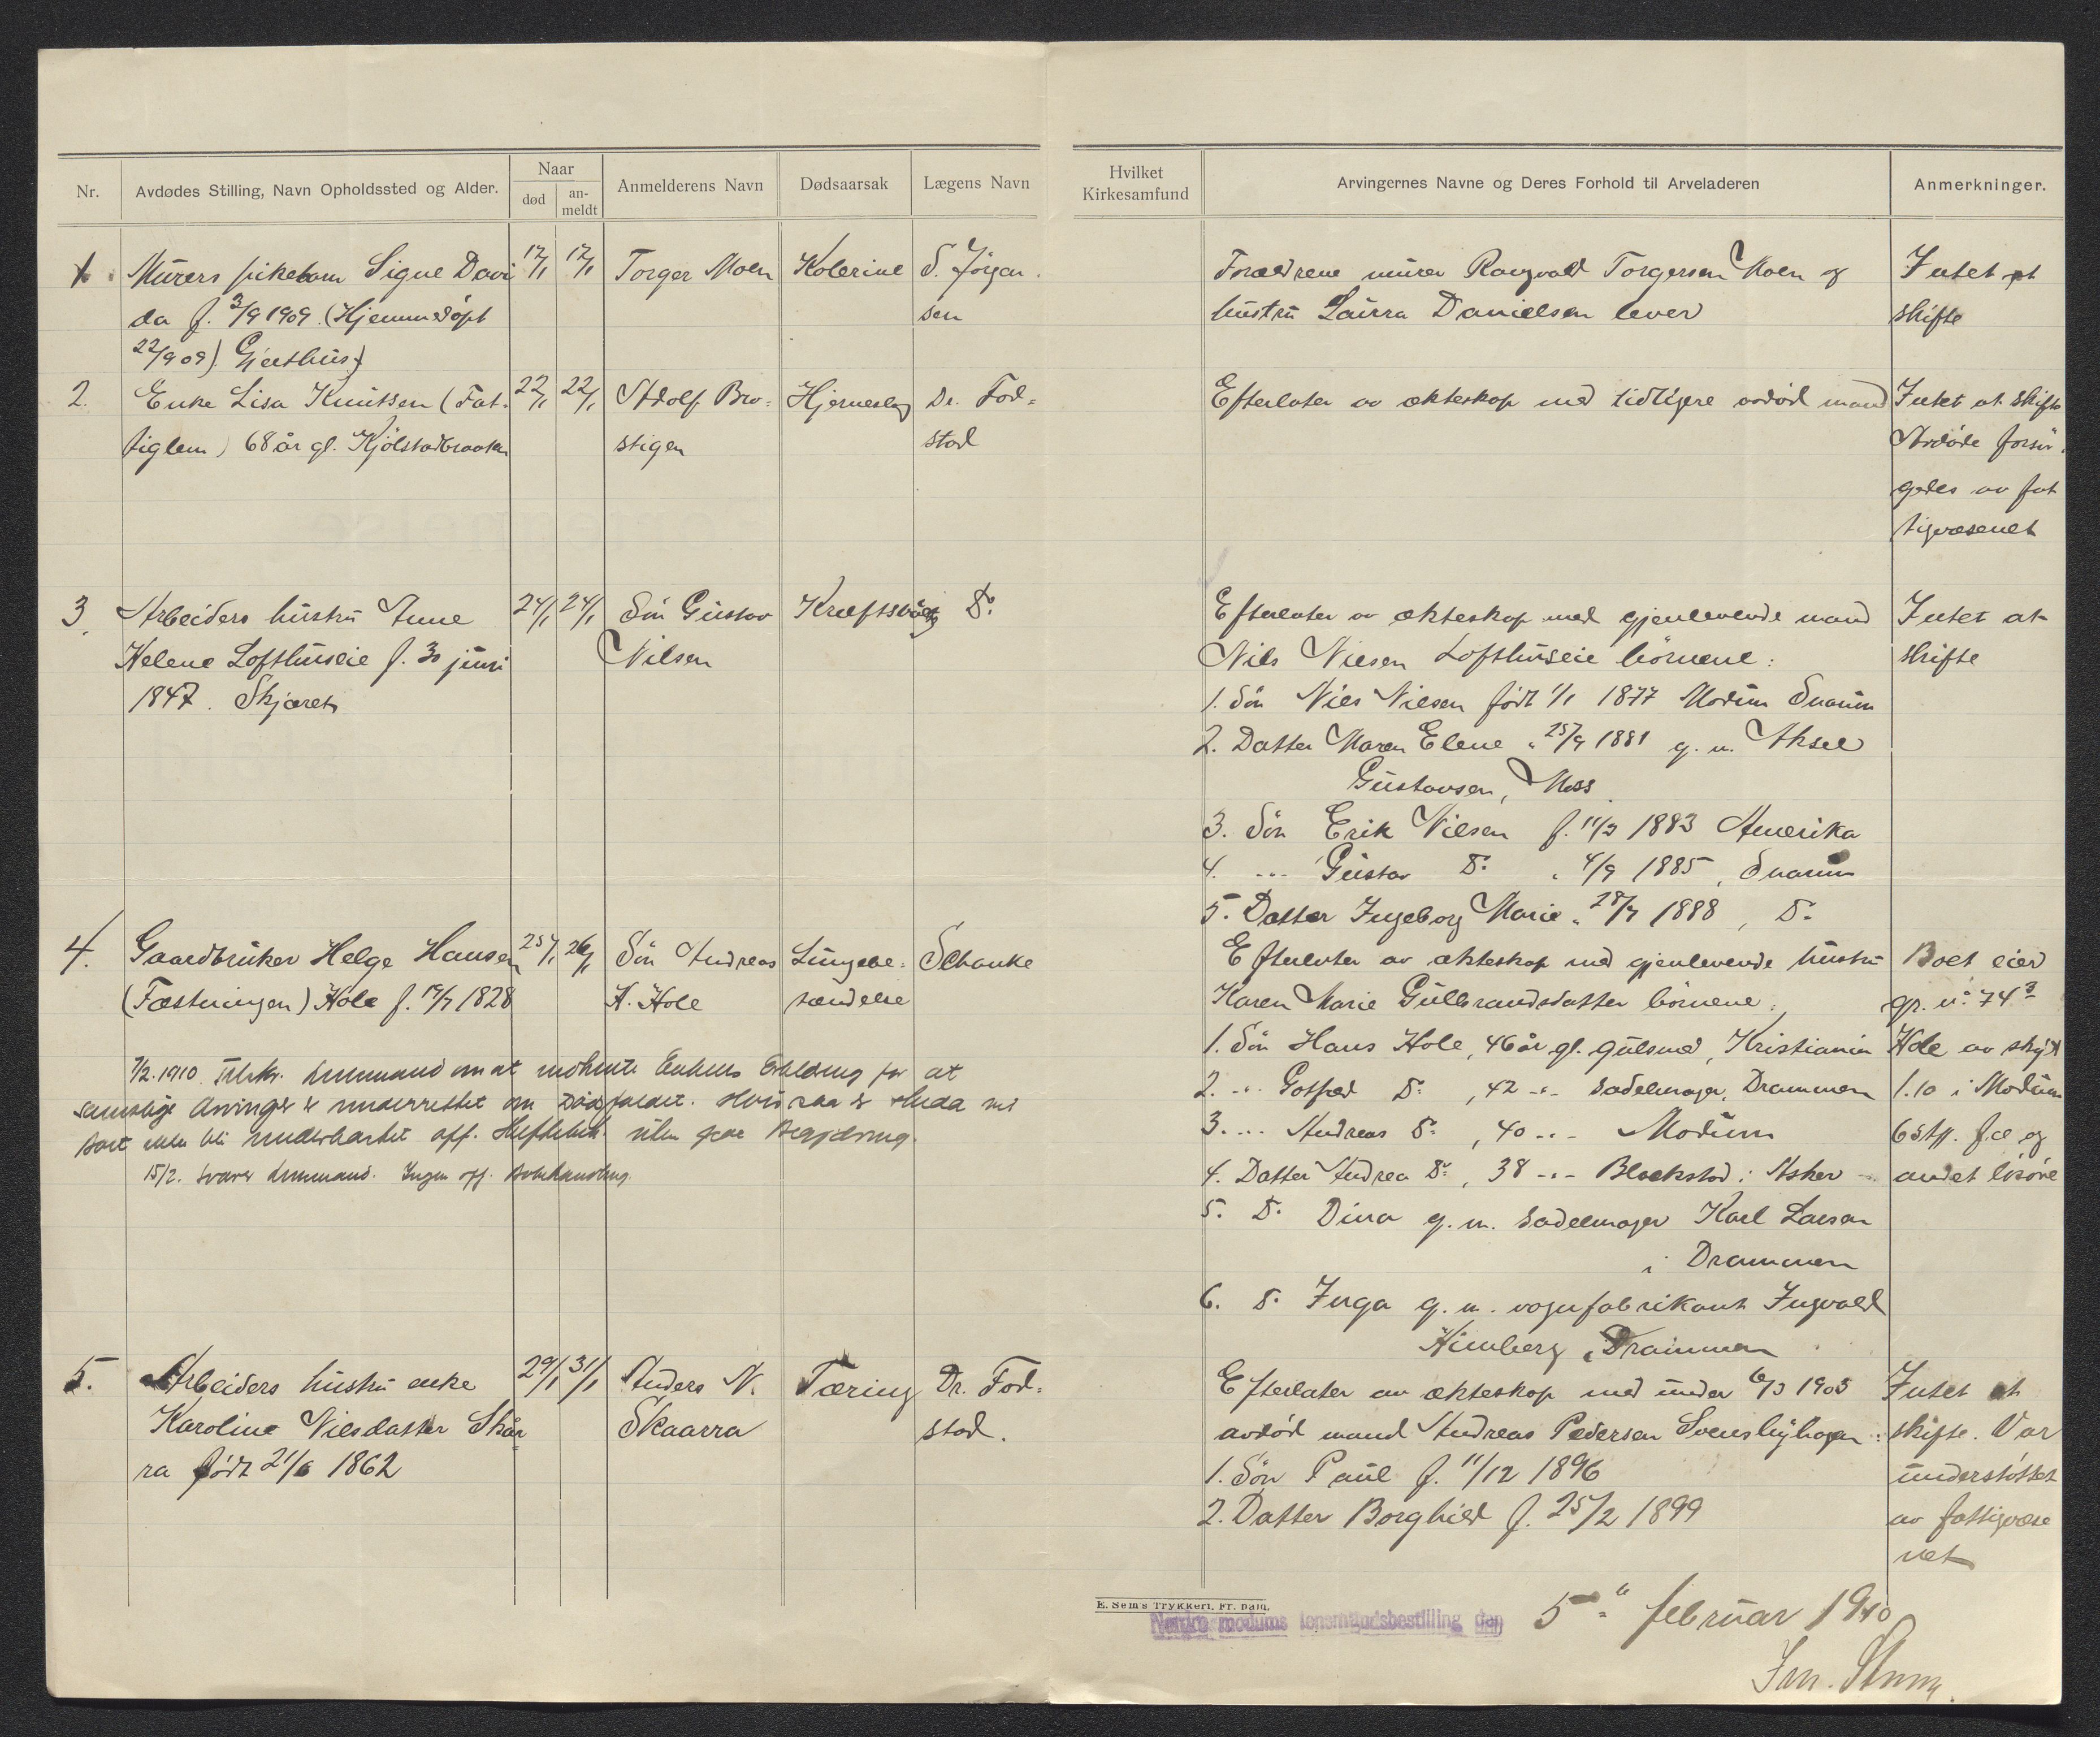 Nr.
Avdødes Stilling, Navn Opholdssted og Alder.
Naar
død
an-
meldt
Anmelderens Navn
Dødsaarsak
Lægens Navn
Hvilket
Kirkesamfund
Arvingernes Navne og Deres Forhold til Arveladeren
Anmerkninger.
1. Murers pikebarn Signe Davi
da f. 3/9 1909. (Hjemmedöpt
22/9 09). Gjethus)
17/1 17/1
Torger Moen
Kolerine
S. Jörgen
sen
Forældrene murer Rangvald Torgersen Moen og
hustru Laura Danielsen lever
Intet at
skifte
2. Enke Lisa Knutsen (Fat-
tiglem) 68 år gl. Kjölstadbraaten
22/1 22/1
Adolf Bro=
stigen
Hjerneslag
Dr. Fod=
stad
Efterlater av ekteskap med tidligere avdöd mand
Intet at skifte
Avdöde forsör-
gedes av fat
tigvæsenet
3. Arbeiders hustru Anne
Helene Lofthuseie f. 30 juni
1847. Skjæret
24/1 24/1
Sön Gustav
Nilsen
Kræftsvulst
Do
Efterlater av ekteskap med gjenlevende mand
Nils Nilsen Lofthuseie börnene:
1. Sön Nils Nilsen födt 1/1 1877 Modum Snarum
2. Datter Maren Elene " 25/9 1881 g. m. Aksel
Gustavsen, Moss
3. Sön Erik Nilsen f. 11/3 1883 Amerika
4. -"- Gustav Do " 4/9 1885, Snarum
5. Datter Ingeborg Marie " 28/7 1888, Do
4. Gaardbruker Helge Hansen
(Fæstningen) Hole f. 19/7 1828
25/1 26/1
Sön Andreas
H. Hole
Lungebe=
tændelse
Schanke
Efterlater av ekteskap med gjenlevende hustru
Karen Marie Gulbrandsdatter börnene:
1. Sön Hans Hole, 46 år gl. gulsmed, Kristiania
2. -"- Gotfred Do, 42 -"- sadelmager, Drammen
3. -"- Andreas Do, 40 -"- Modum
4. Datter Andrea Do, 38 -"- Blakstad i Asker
5. Do Dina g. m. sadelmager Karl Larsen
i Drammen
6. Do Inga g. m. vognfabrikant Ingvald
Himberg, Drammen
Boet eier
gr. no 74 3
Hole av skyld
1.10 i Modum
6 stk. fæ og
andet lösöre
7/2.1910. Tilskr. lensmand om at indhente Enkens Erklæring for at
samtlige Arvinger er underrettet om Dødsfaldet.
15/2. svarer lensmand. Ingen off. Bobehandling.
5. Arbeiders hustru enke
Karoline Nilsdatter Skår
ra födt 21/6 1862
29/1 31/1
Anders N.
Skaarra
Tæring
Dr. Fod=
stad.
Efterlater av ekteskap med under 6/3 1905
avdöd mand Andreas Pedersen Svenslyhagen:
1. Sön Paul f. 11/12 1896
2. Datter Borghild f. 25/2 1899
Intet at
skifte. Var
understöttet
av fattigvæse
net
E. Sem's Trykkeri. Fr. hald.
Nordre modums lensmandsbestilling den 5te februar 1910